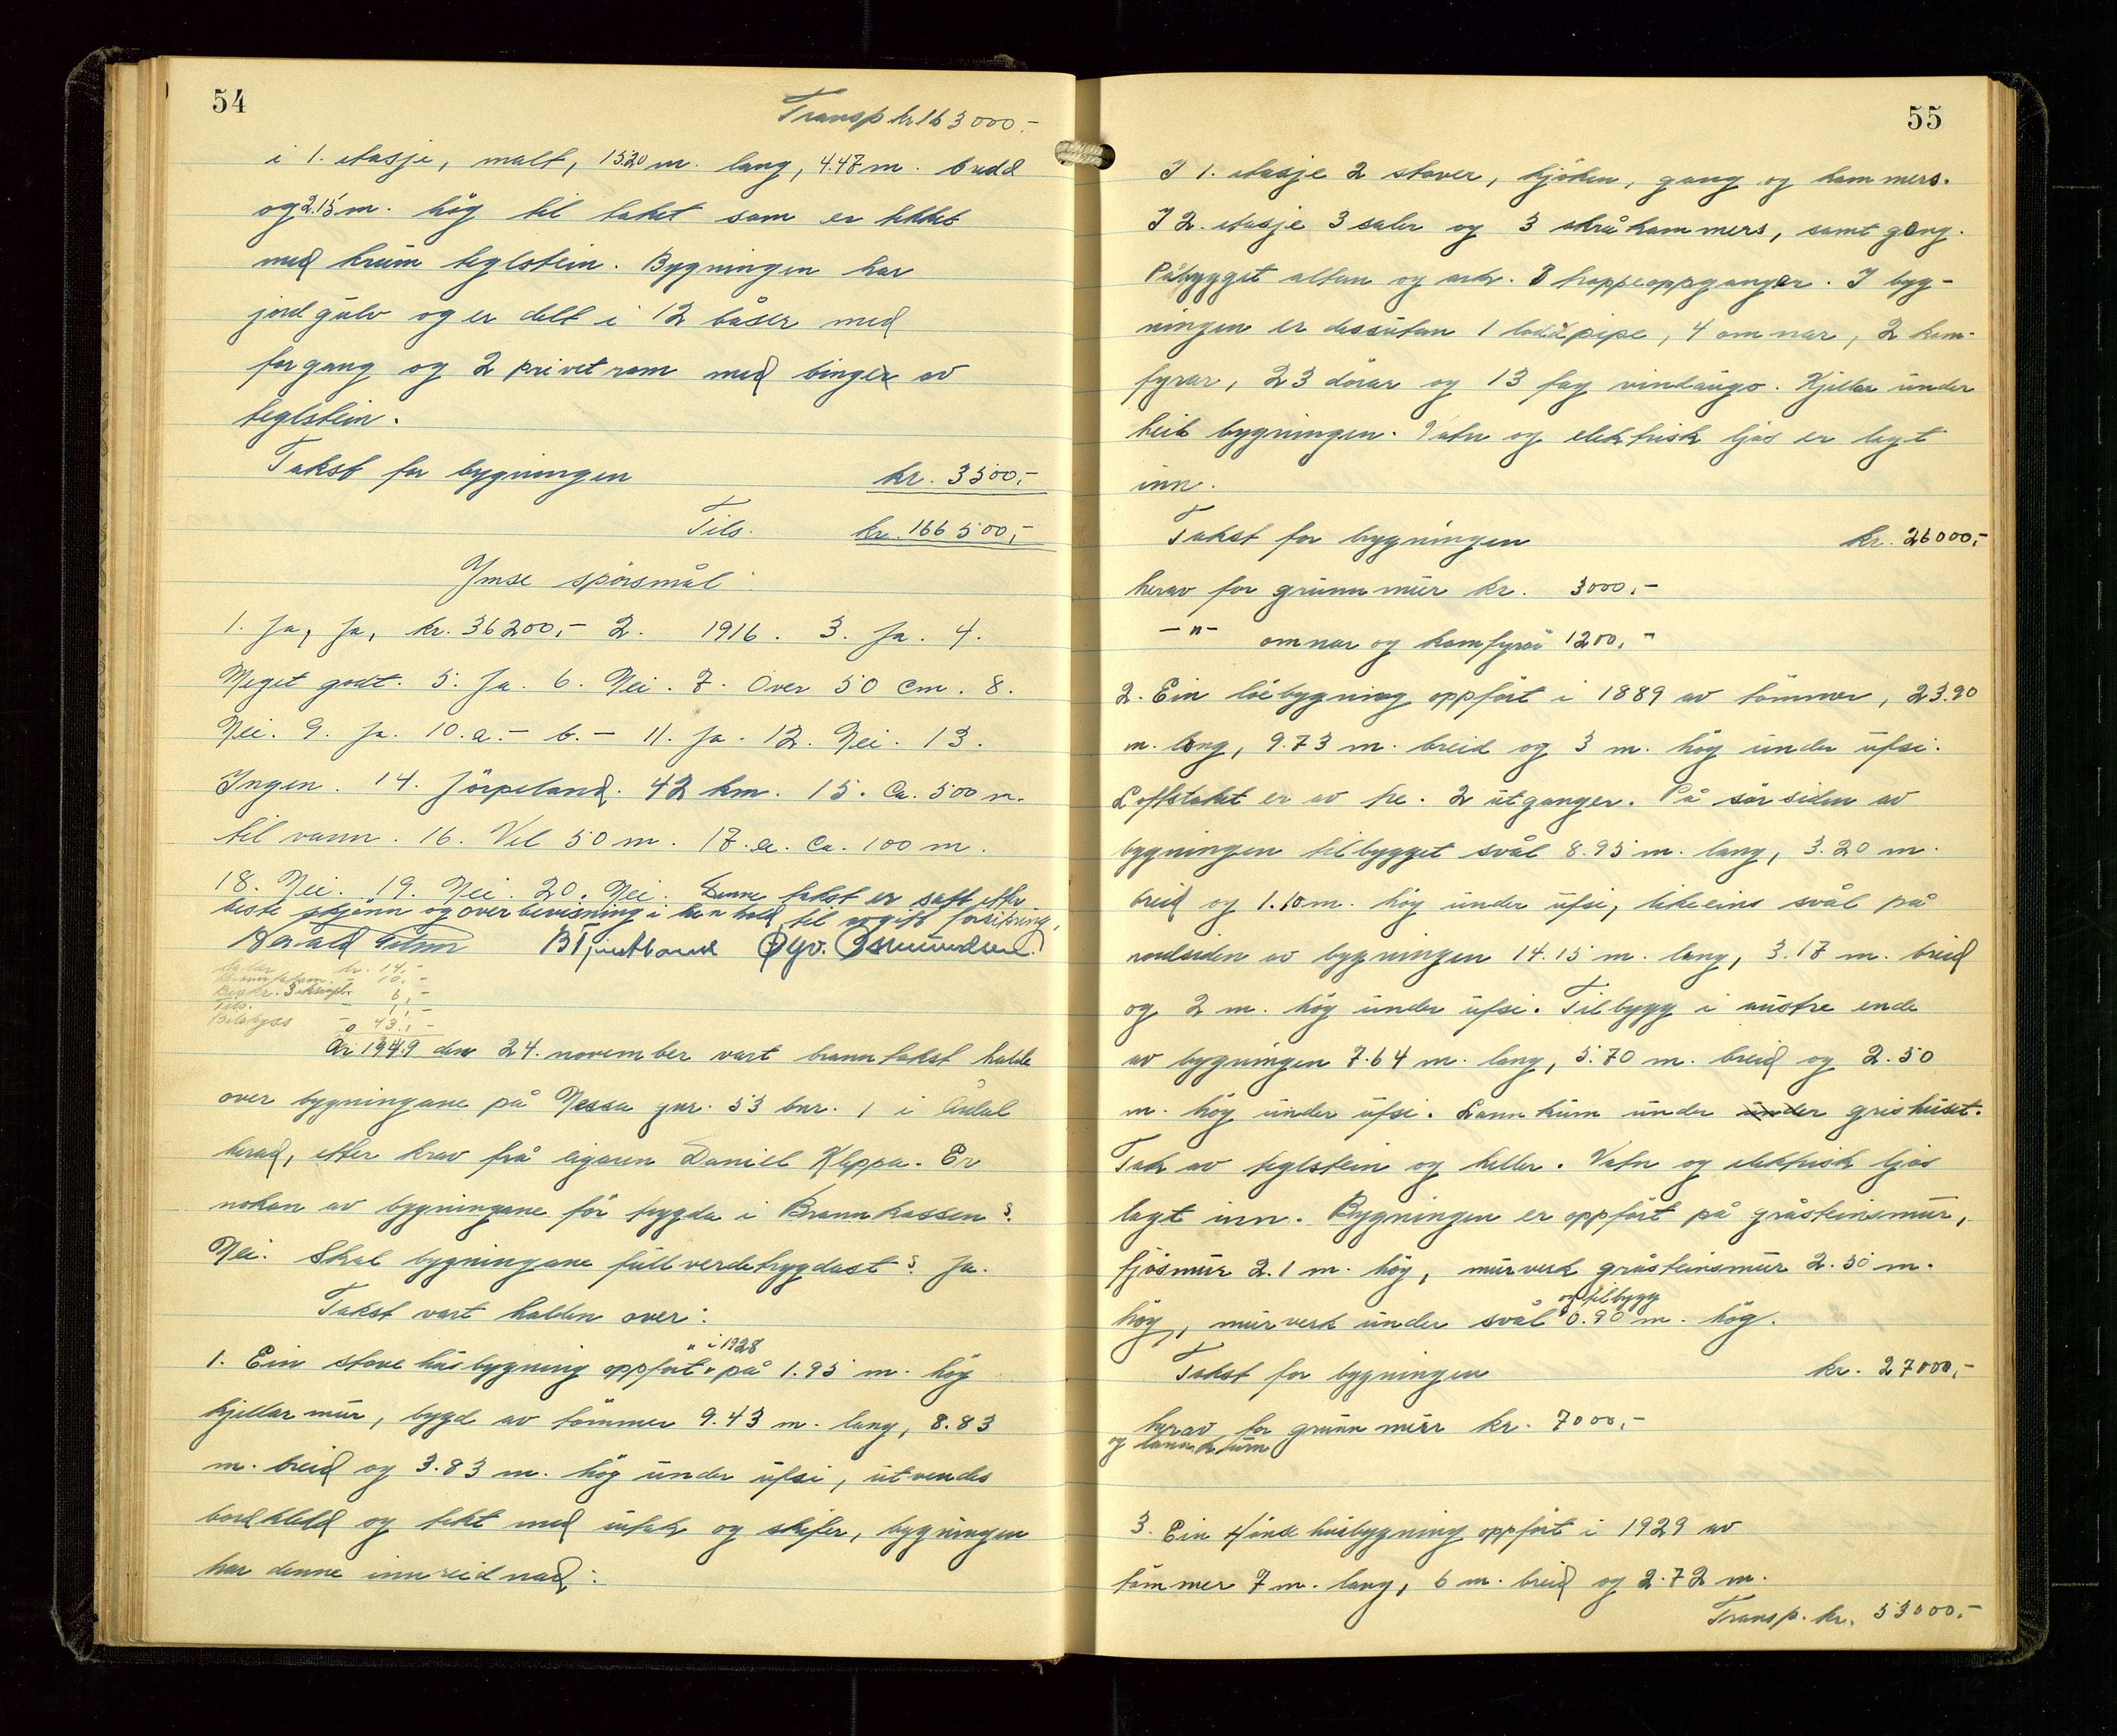 54
Transp kr 163000.-
i 1. etasje, malt, 15.20 m. lang, 4.47 m. bredd
og 2.15 m. høg til taket som er tekket
med krum teglstein. Bygningen har
jordgulv og er delt i 12 båser med
forgang og 2 privet rom med binger av
teglstein.
Takst for bygningen kr. 3500,-
Tils. kr. 166500,-
Ymse spörsmål:
1. Ja, Ja, kr. 36200,- 2. 1916. 3. Ja. 4.
Meget godt. 5. Ja. 6. Nei. 7. Over 50 cm. 8.
Nei. 9. Ja. 10. a.- b.- 11. Ja. 12. Nei. 13.
Ingen. 14. Jörpeland. 42 km. 15. Ca. 500 m.
til vann. 16. Vel 50 m. 17. a. Ca. 100 m.
18. Nei. 19. Nei. 20. Nei. Denne takst er satt etter
beste skjönn og overbevisning i henhold til avgitt forsikring.
Harald
kr. 14,-
10,-
3 eksempl. 6,-
Tils. 1,-
Bilskyss 43,-
År 1949 den 24. november vart branntakst halde
over bygningane på Nessa gnr. 53 bnr. 1 i Årdal
herad, etter krav frå eigaren Daniel Kleppa. Er
nokon av bygningane för trygda i Brannkassen?
Nei. Skal bygningane fullverdetrygdast? Ja.
Takst vart halden over:
1. Ein stovehusbygning oppfört i 1928 på 1.95 m. høg
kjellarmur, bygd av tömmer 9.43 m. lang, 8.83
m. breid og 3.83 m. høg under ufsi, utvendes
bordkledd og tekt med utak og skifer, bygningen
har denne innreidnad:
55
I 1. etasje 2 stover, kjöken, gang og kammers.
I 2. etasje 3 saler og 3 skråkammers, samt gang.
Påbygget altan og ark. 3 trappeoppganger. I byg-
ningen er dessutan 1 loddpipe, 4 omnar, 2 kom-
fyrar, 23 dörar og 13 fag vindaugo. Kjellar under
heile bygningen. Vatn og elektrisk ljos er lagt
inn.
Takst for bygningen kr. 26000,-
herav for grunnmur kr. 3000,-
-"- omnar og komfyrar 1200,-
2. Ein löebygning oppfört i 1889 av tömmer, 23.90
m. lang, 9.73 m. breid og 3 m. høg under ufsi.
Loftstaket er av tre. 2 utganger. På sörsiden av
bygningen tilbygget svål 8.95 m. lang, 3.20 m.
breid og 1.10 m. høg under ufsi, likeeins svål på
nordsiden av bygningen 14.15 m. lang, 3.17 m. breid
og 2 m. høg under ufsi. Tilbygg i austre ende
av bygningen 7.64 m. lang, 5.70 m. breid og 2.50
m. høg under ufsi. Lannkum under under grishuset.
Tak av teglstein og heller. Vatn og elektrisk ljos
lagt inn. Bygningen er oppfört på gråsteinsmur,
fjösmur 2.1 m. høg, murverk gråsteinsmur 2.50 m.
høg, murverk under svål og tilbygg 0.90 m. høg.
Takst for bygningen kr. 27000,-
herav for grunnmur kr. 7000,-
og lannkum
3. Ein eldhusbygning oppfört i 1929 av
tömmer 7 m. lang, 6 m. breid og 2.72 m.
Transp. kr. 53000,-